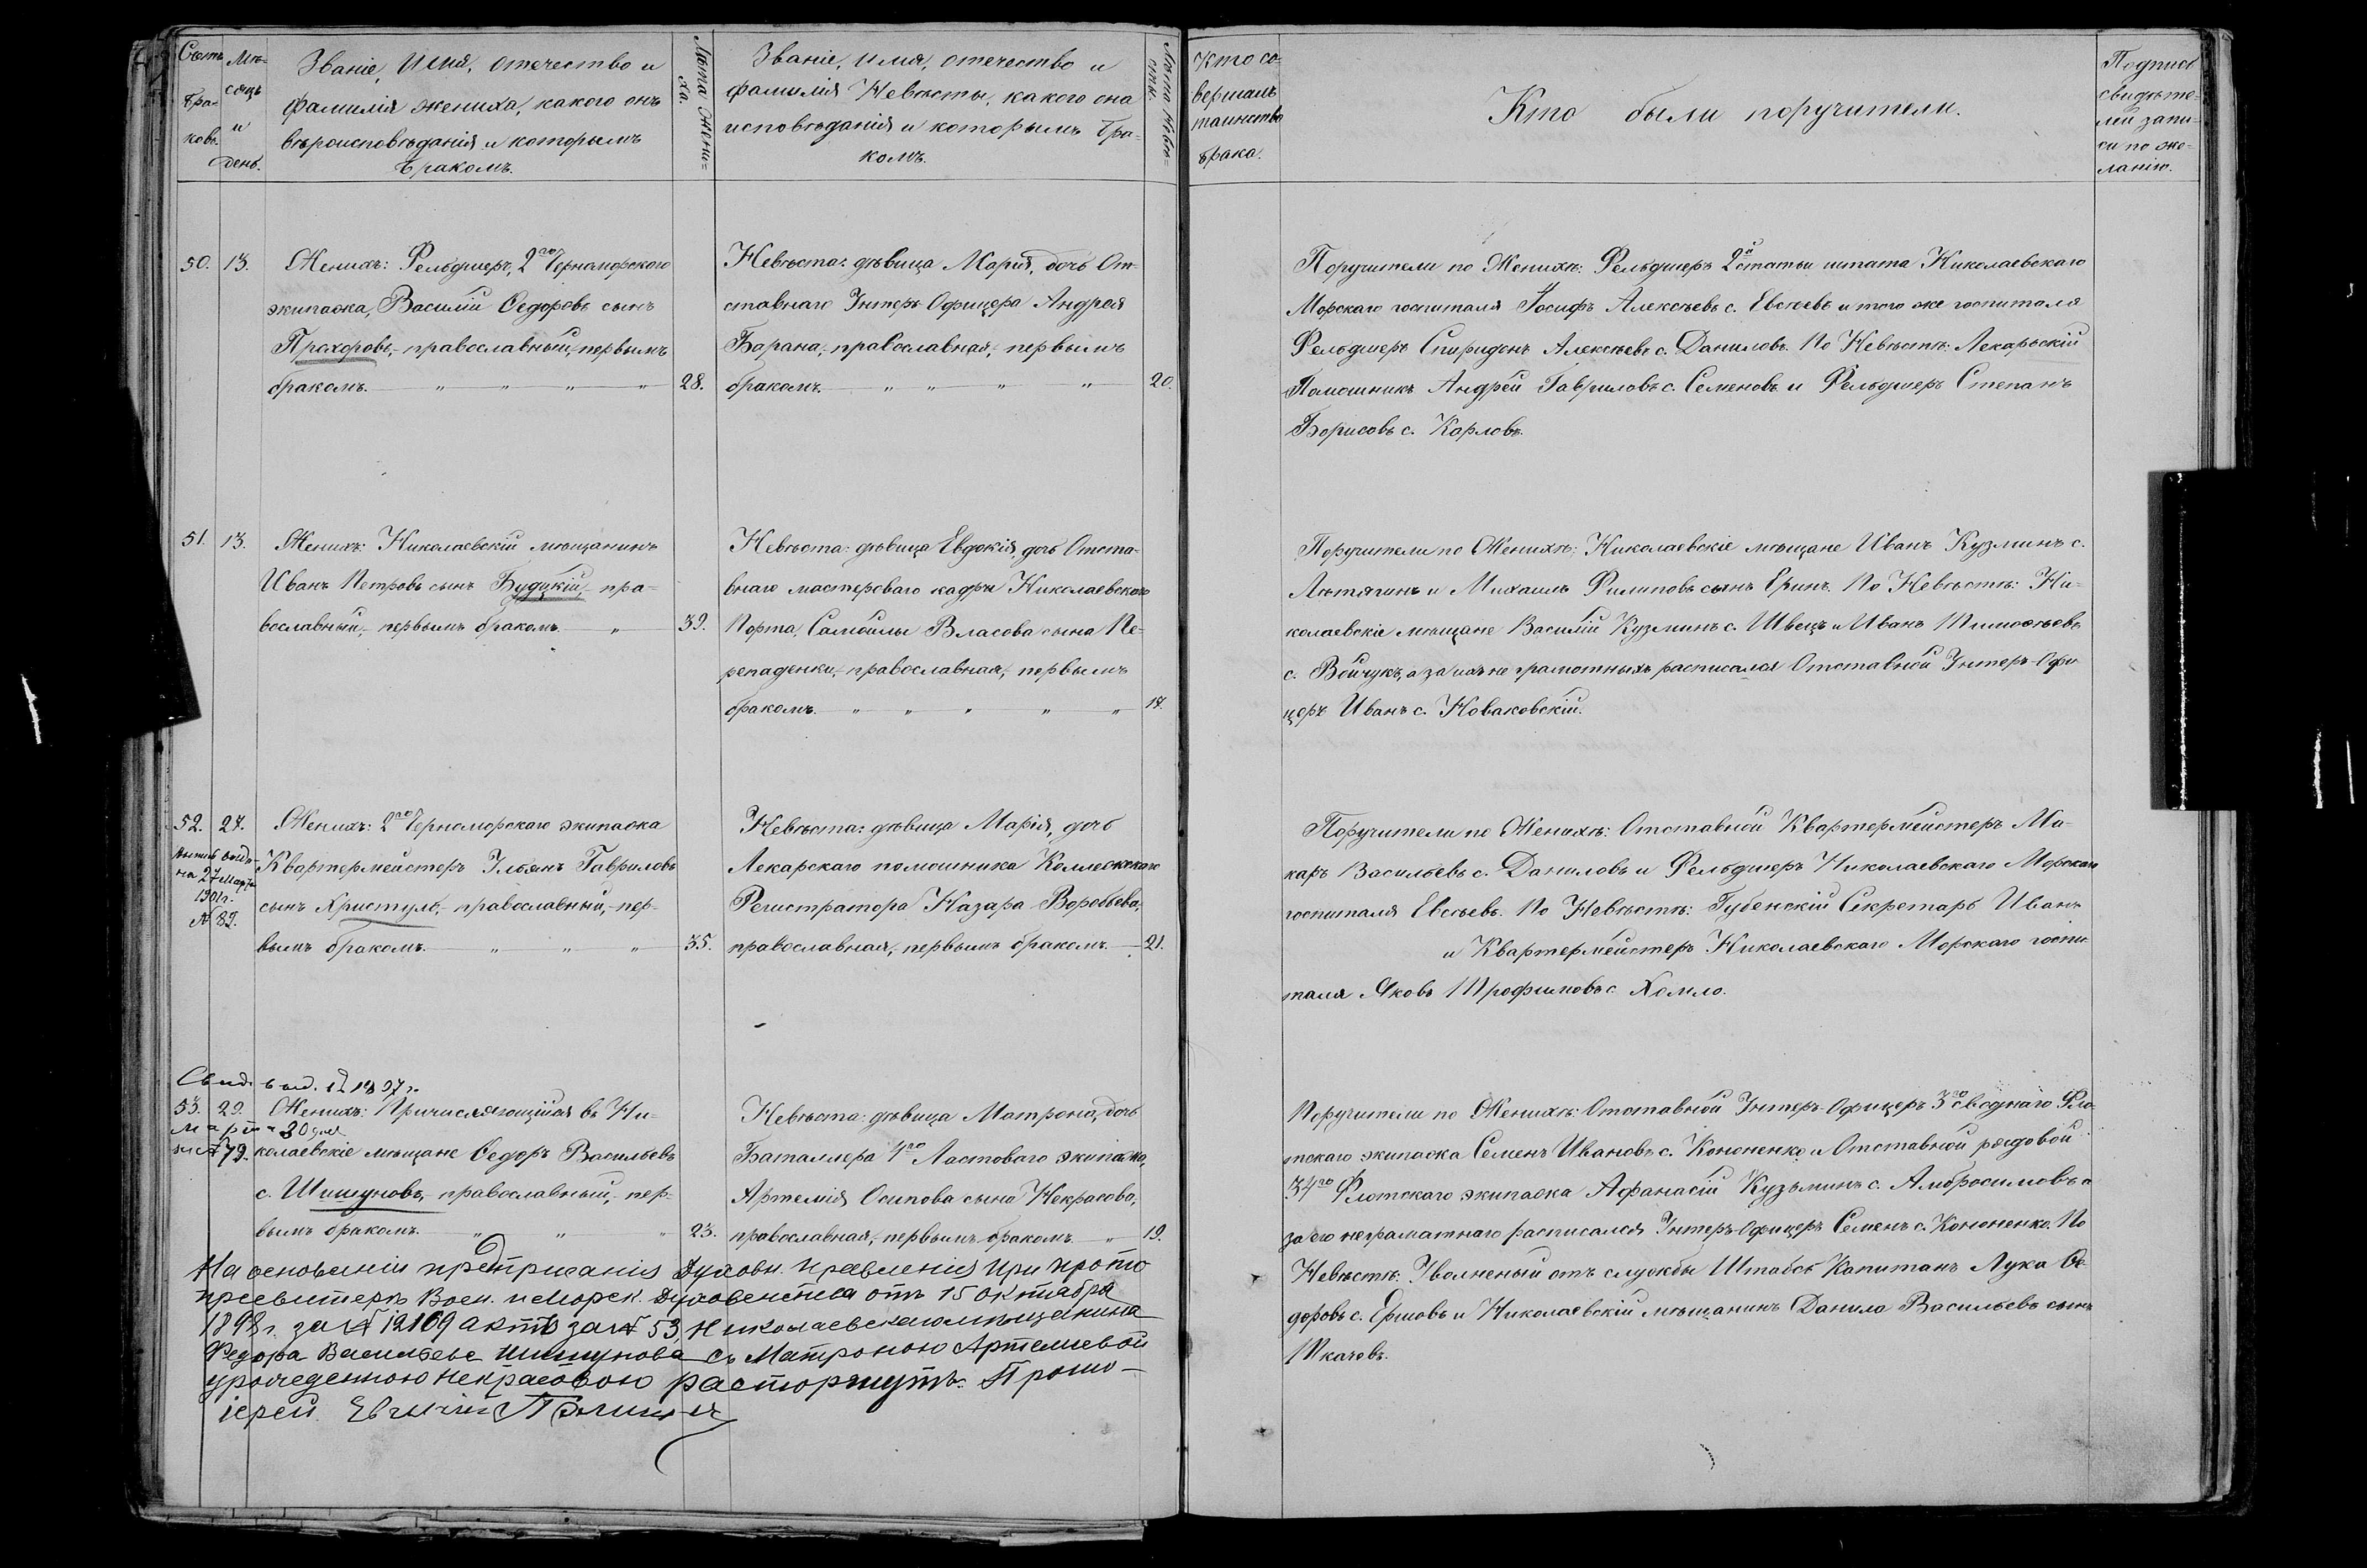 Счетъ бра-
ковъ.
Мѣ-
сяцъ
и
день.
Званіе, Имя, отечество и
фамилія жениха, какого онъ
вѣроисповѣданія и которымъ
бракомъ.
Лѣта Жени=
ха.
Званіе, имя, отечество и
фамилія Невѣсты, какого она
исповѣданія и которымъ бра-
комъ.
Лѣта Невѣ=
сты.
Кто со-
вершалъ
таинство
брака.
Кто были поручители.
Подпись
свидѣте-
лей запи-
си по же-
ланію.
50. 13.
Женихъ: Фельдшеръ, 2го Черноморскаго
экипажа, Василій Ѳедоровъ сынъ
Прохоровъ,- православный, первымъ
бракомъ. " " " " 28.
Невѣста: дѣвица Марія, дочь От-
ставнаго Унтеръ Офицера Андрея
Барана, православная, первымъ
бракомъ. " " " " 20.
Поручители по Женихѣ: Фельдшеръ 2й статьи штата Николаевскаго
Морскаго госпиталя Іосифъ Алексѣевъ с. Евсѣевъ и того же госпиталя
Фельдшеръ Спиридонъ Алексѣевъ с. Даниловъ. По Невѣстѣ: Лекарьскій
Помошникъ Андрей Гавриловъ с. Семеновъ и Фельдшеръ Степанъ
Борисовъ с. Карловъ.
51. 13.
Женихъ: Николаевскій мѣщанинъ
Иванъ Петровъ сынъ Будцкій,- пра-
вославный,- первымъ бракомъ. " 39.
Невѣста: дѣвица Евдокія, дочь Отста-
внаго мастероваго кадры Николаевскаго
Порта, Самойлы Власова сына Пе-
репаденки,- православная, первымъ
бракомъ. " " " " " 17.
Поручители по Женихѣ: Николаевскіе мѣщане Иванъ Кузминъ с.
Лѣтягинъ и Михаилъ Филиповъ сынъ Еринъ. По Невѣстѣ: Ни-
колаевскіе мѣщане Василій Кузминъ с. Швецъ и Иванъ Тимоѳѣевъ
с. Войчукъ, а за ихъ не грамотныхъ расписался Отставной Унтеръ-Офи
церъ Иванъ с. Новаковскій.
52. 27.
выпись выда-
на 27 Марта
1901г.
№ 89.
Женихъ: 2го Черноморскаго экипажа
Квартермейстеръ Ульянъ Гавриловъ
сынъ Христулъ,- православный,- пер-
вымъ бракомъ. " " " 35.
Невѣста: дѣвица Марія, дочь
Лекарскаго помошника Коллежскаго
Регистратора Назара Воробьева,
православная, первымъ бракомъ. 21.
Поручители по Женихѣ: Отставной Квартермейстеръ Ма-
каръ Васильевъ с. Даниловъ и Фельдшеръ Николаевскаго Морскаго
госпиталя Евсѣевъ. По Невѣстѣ: Губенскій Секретарь Иванъ
и Квартермейстеръ Николаевскаго Морскаго госпи
таля Яковъ Трофимовъ с. Хомло.
Свид. выд. 1897г.
53. 29.
Марта 30 дня
за № 79.
Женихъ: Причисляющійся въ Ни-
колаевскіе мѣщане Ѳедоръ Васильевъ
с. Шишуновъ,- православный,- пер-
вымъ бракомъ. " " " 23.
Невѣста: дѣвица Матрона, дочь
Баталлера 1го Ластоваго экипажа,
Артемія Осипова сына Некрасова,
православная, первымъ бракомъ. " 19.
Поручители по Женихѣ: Отставной Унтеръ-Офицеръ 3го сводного Фло-
тскаго экипажа Семенъ Ивановъ с. Кононенко и Отставной рядовой
34го Флотскаго экипажа Афанасій Кузьминъ с. Амбросимовъ а
за его неграматнаго расписался Унтеръ-Офицеръ Семенъ с. Кононенко. По
Невѣстѣ: Уволненый отъ службы Штабсъ Капитанъ Лука Ѳе
доровъ с. Ершовъ и Николаевскій мѣщанинъ Данило Васильевъ сынъ
Ткачовъ.
На основаніи предписанія Духовн. Правленія при прото
пресвитерѣ Воен. и Морск. Духовенства отъ 15 октября
1898г. за № 12169 актъ за № 53 Николаевскаго мѣщанина
Федора Васильева Шишунова съ Матроною Артемьевой
урожденною Некрасовою расторгнутъ. Прото-
іерей